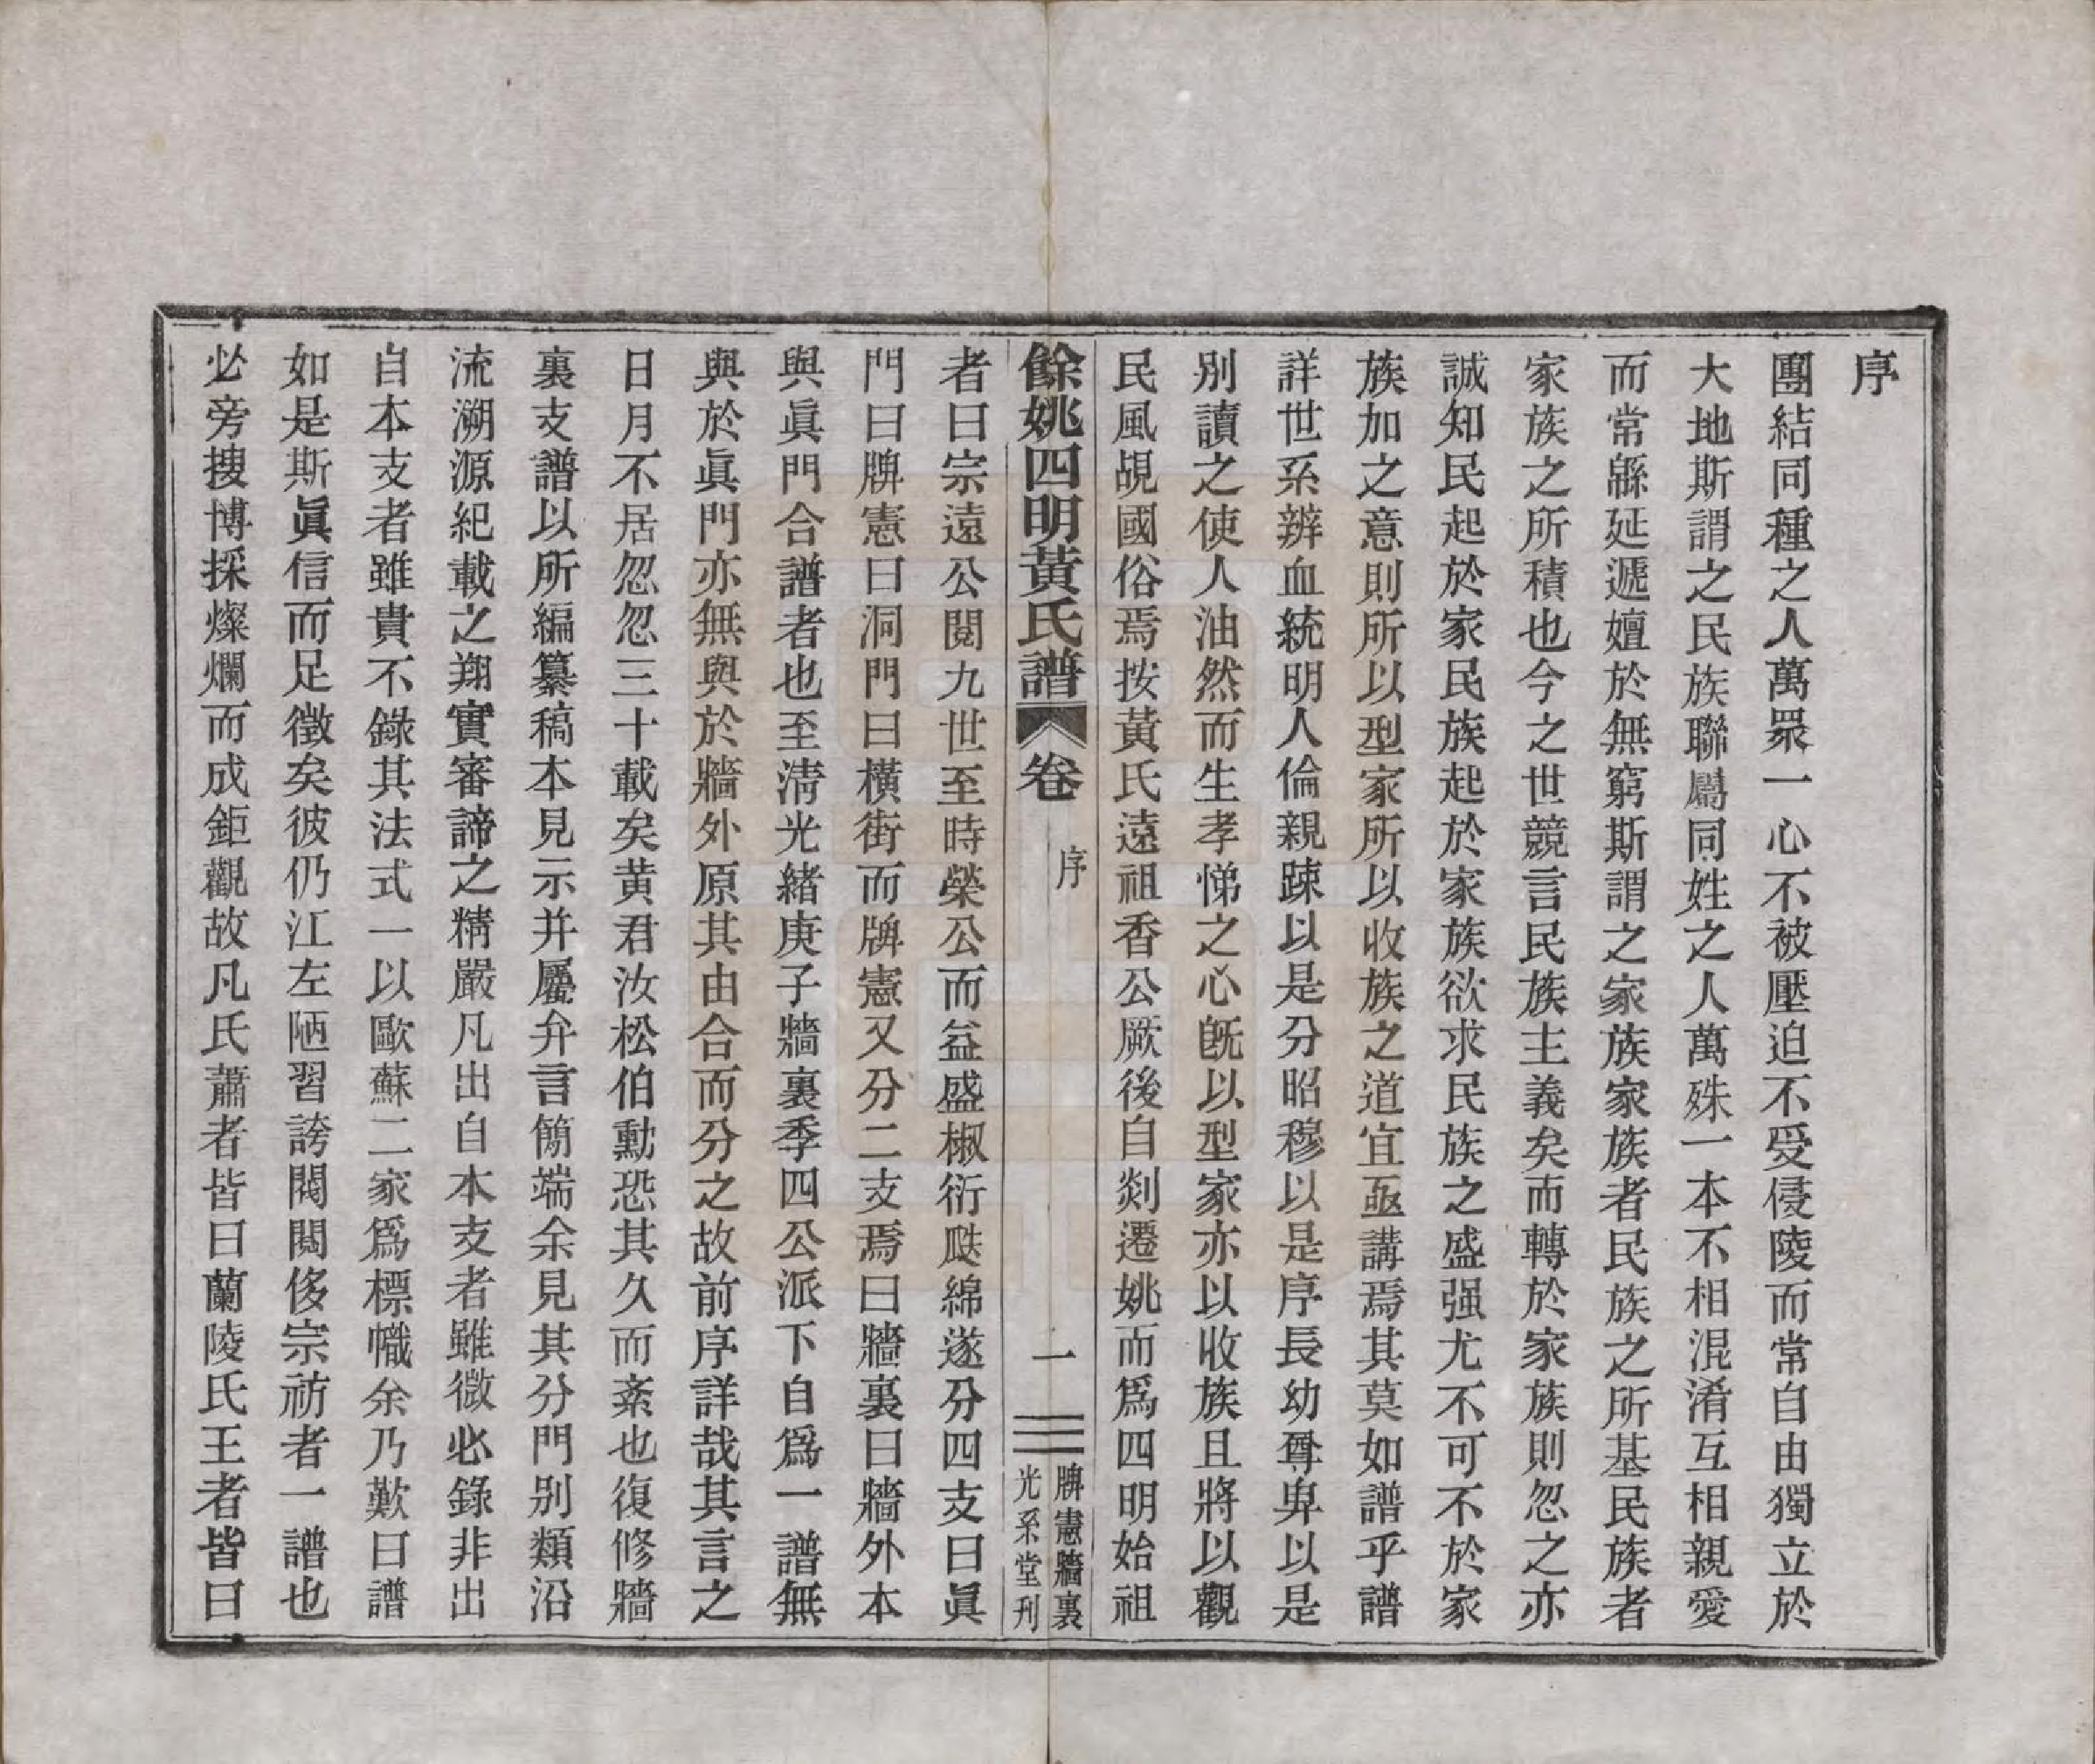 序
團結同種之人萬眾一心不被壓迫不受侵陵而常自由獨立於
大地斯謂之民族聯屬同姓之人萬殊一本不相混淆互相親愛
而常緜延遞嬗於無窮斯謂之家族家族者民族之所基民族者
家族之所積也今之世競言民族主義矣而轉於家族則忽之亦
誠知民起於家民族起於家族欲求民族之盛强尤不可不於家
族加之意則所以型家所以收族之道宜亟講焉其莫如譜乎譜
詳世系辨血統明人倫親踈以是分昭穆以是序長幼尊卑以是
別讀之使人油然而生孝悌之心旣以型家亦以收族且將以觀
民風覘國俗焉按黃氏遠祖香公厥後自剡遷姚而爲四明始祖
餘姚四明黃氏譜 卷 序 一 牌憲牆裏 光系堂刋
者曰宗遠公閱九世至時榮公而益盛椒衍瓞綿遂分四支曰眞
門曰牌憲曰洞門曰橫街而牌憲又分二支焉曰牆裏曰牆外本
與眞門合譜者也至淸光緒庚子牆裏季四公派下自爲一譜無
與於眞門亦無與於牆外原其由合而分之故前序詳哉其言之
日月不居忽忽三十載矣黄君汝松伯勳恐其久而紊也復修牆
裏支譜以所編纂稿本見示并屬弁言簡端余見其分門別類沿
流溯源紀載之翔實審諦之精嚴凡出自本支者雖微必錄非出
自本支者雖貴不錄其法式一以歐蘇二家爲標幟余乃歎曰譜
如是斯眞信而足徵矣彼仍江左陋習誇閥閱侈宗祊者一譜也
必旁搜博採燦爛而成鉅觀故凡氏蕭者皆曰蘭陵氏王者皆曰